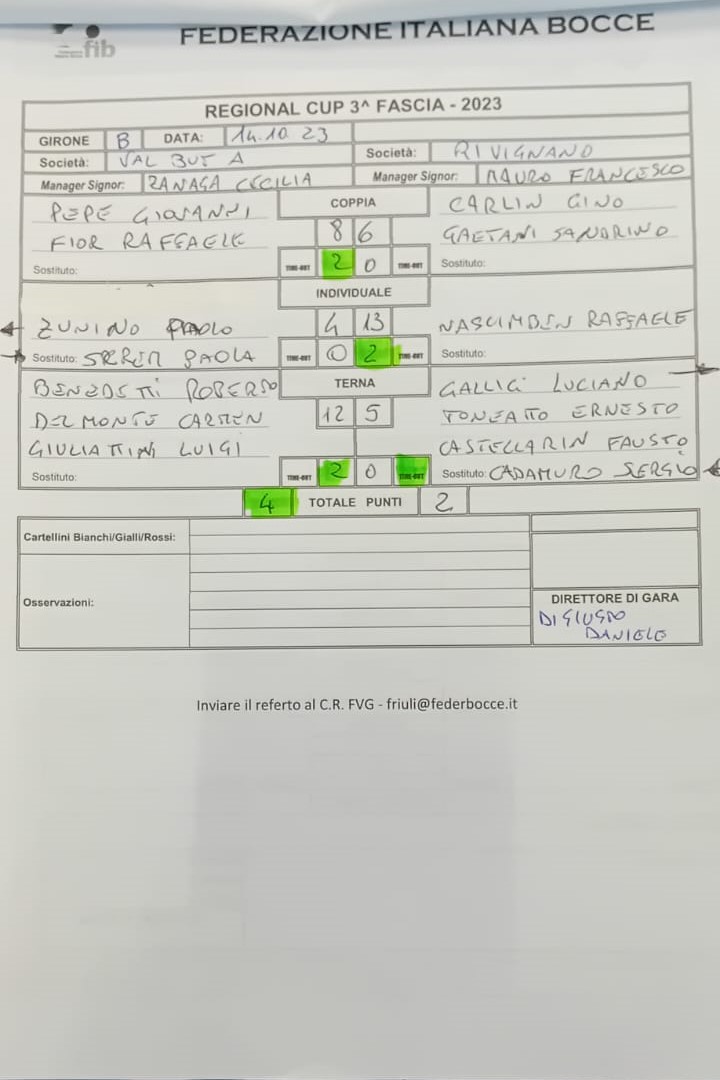 fib
FEDERAZIONE ITALIANA BOCCE
REGIONAL CUP 3^ FASCIA - 2023
GIRONE B DATA: 14.10.23
Società: VAL BUT A Società: RIVIGNANO
Manager Signor: ZANAGA CECILIA Manager Signor: MAURO FRANCESCO
PEPE GIOVANNI COPPIA CARLIN GINO
FIOR RAFFAELE 8 6 GAETANI SANDRINO
Sostituto: TIME-OUT 2 0 TIME-OUT Sostituto:
INDIVIDUALE
ZUNINO PAOLO 4 13 NASCIMBEN RAFFAELE
Sostituto: PAOLA TIME-OUT 0 2 TIME-OUT Sostituto:
BENEDETTI ROBERTO TERNA GALLICI LUCIANO
DEL MONTE CARMEN 12 5 TONEATTO ERNESTO
GIULIATTINI LUIGI CASTELLARIN FAUSTO
Sostituto: TIME-OUT 2 0 TIME-OUT Sostituto: CADAMURO SERGIO
4 TOTALE PUNTI 2
Cartellini Bianchi/Gialli/Rossi:
Osservazioni:
DIRETTORE DI GARA
DI GIUSTO
DANIELE
Inviare il referto al C.R. FVG - friuli@federbocce.it